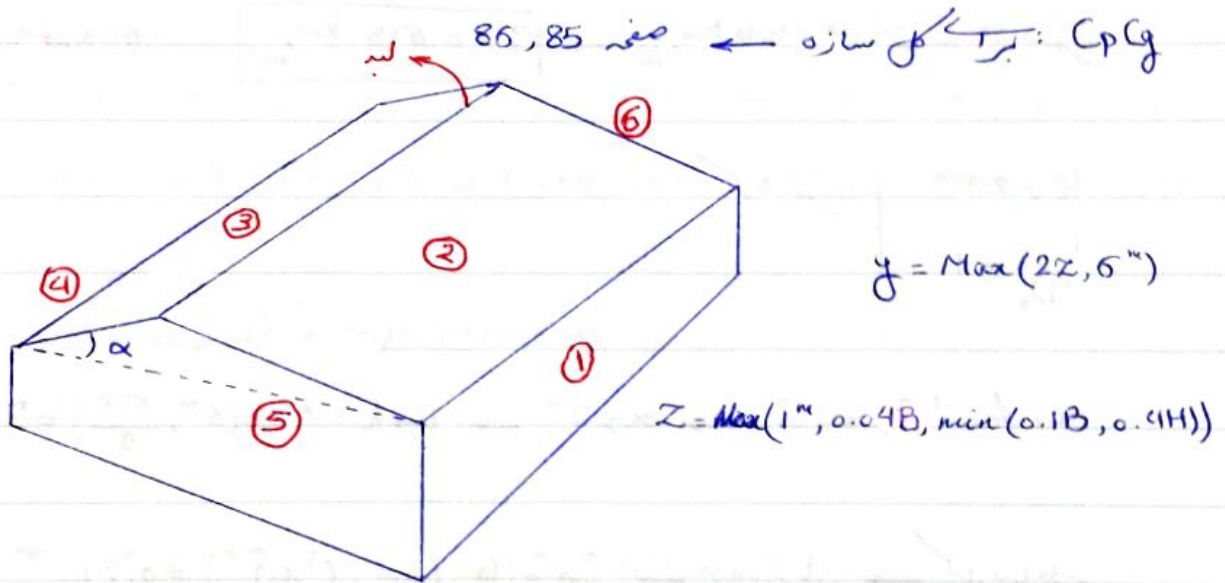 CpCg : برای کل سازه ← صفحه 85, 86
لبه
⑥
③
②
④
y = Max(2z, 6ᵐ)
α
①
⑤
Z = Max(1ᵐ, 0.04B, min(0.1B, 0.4H))